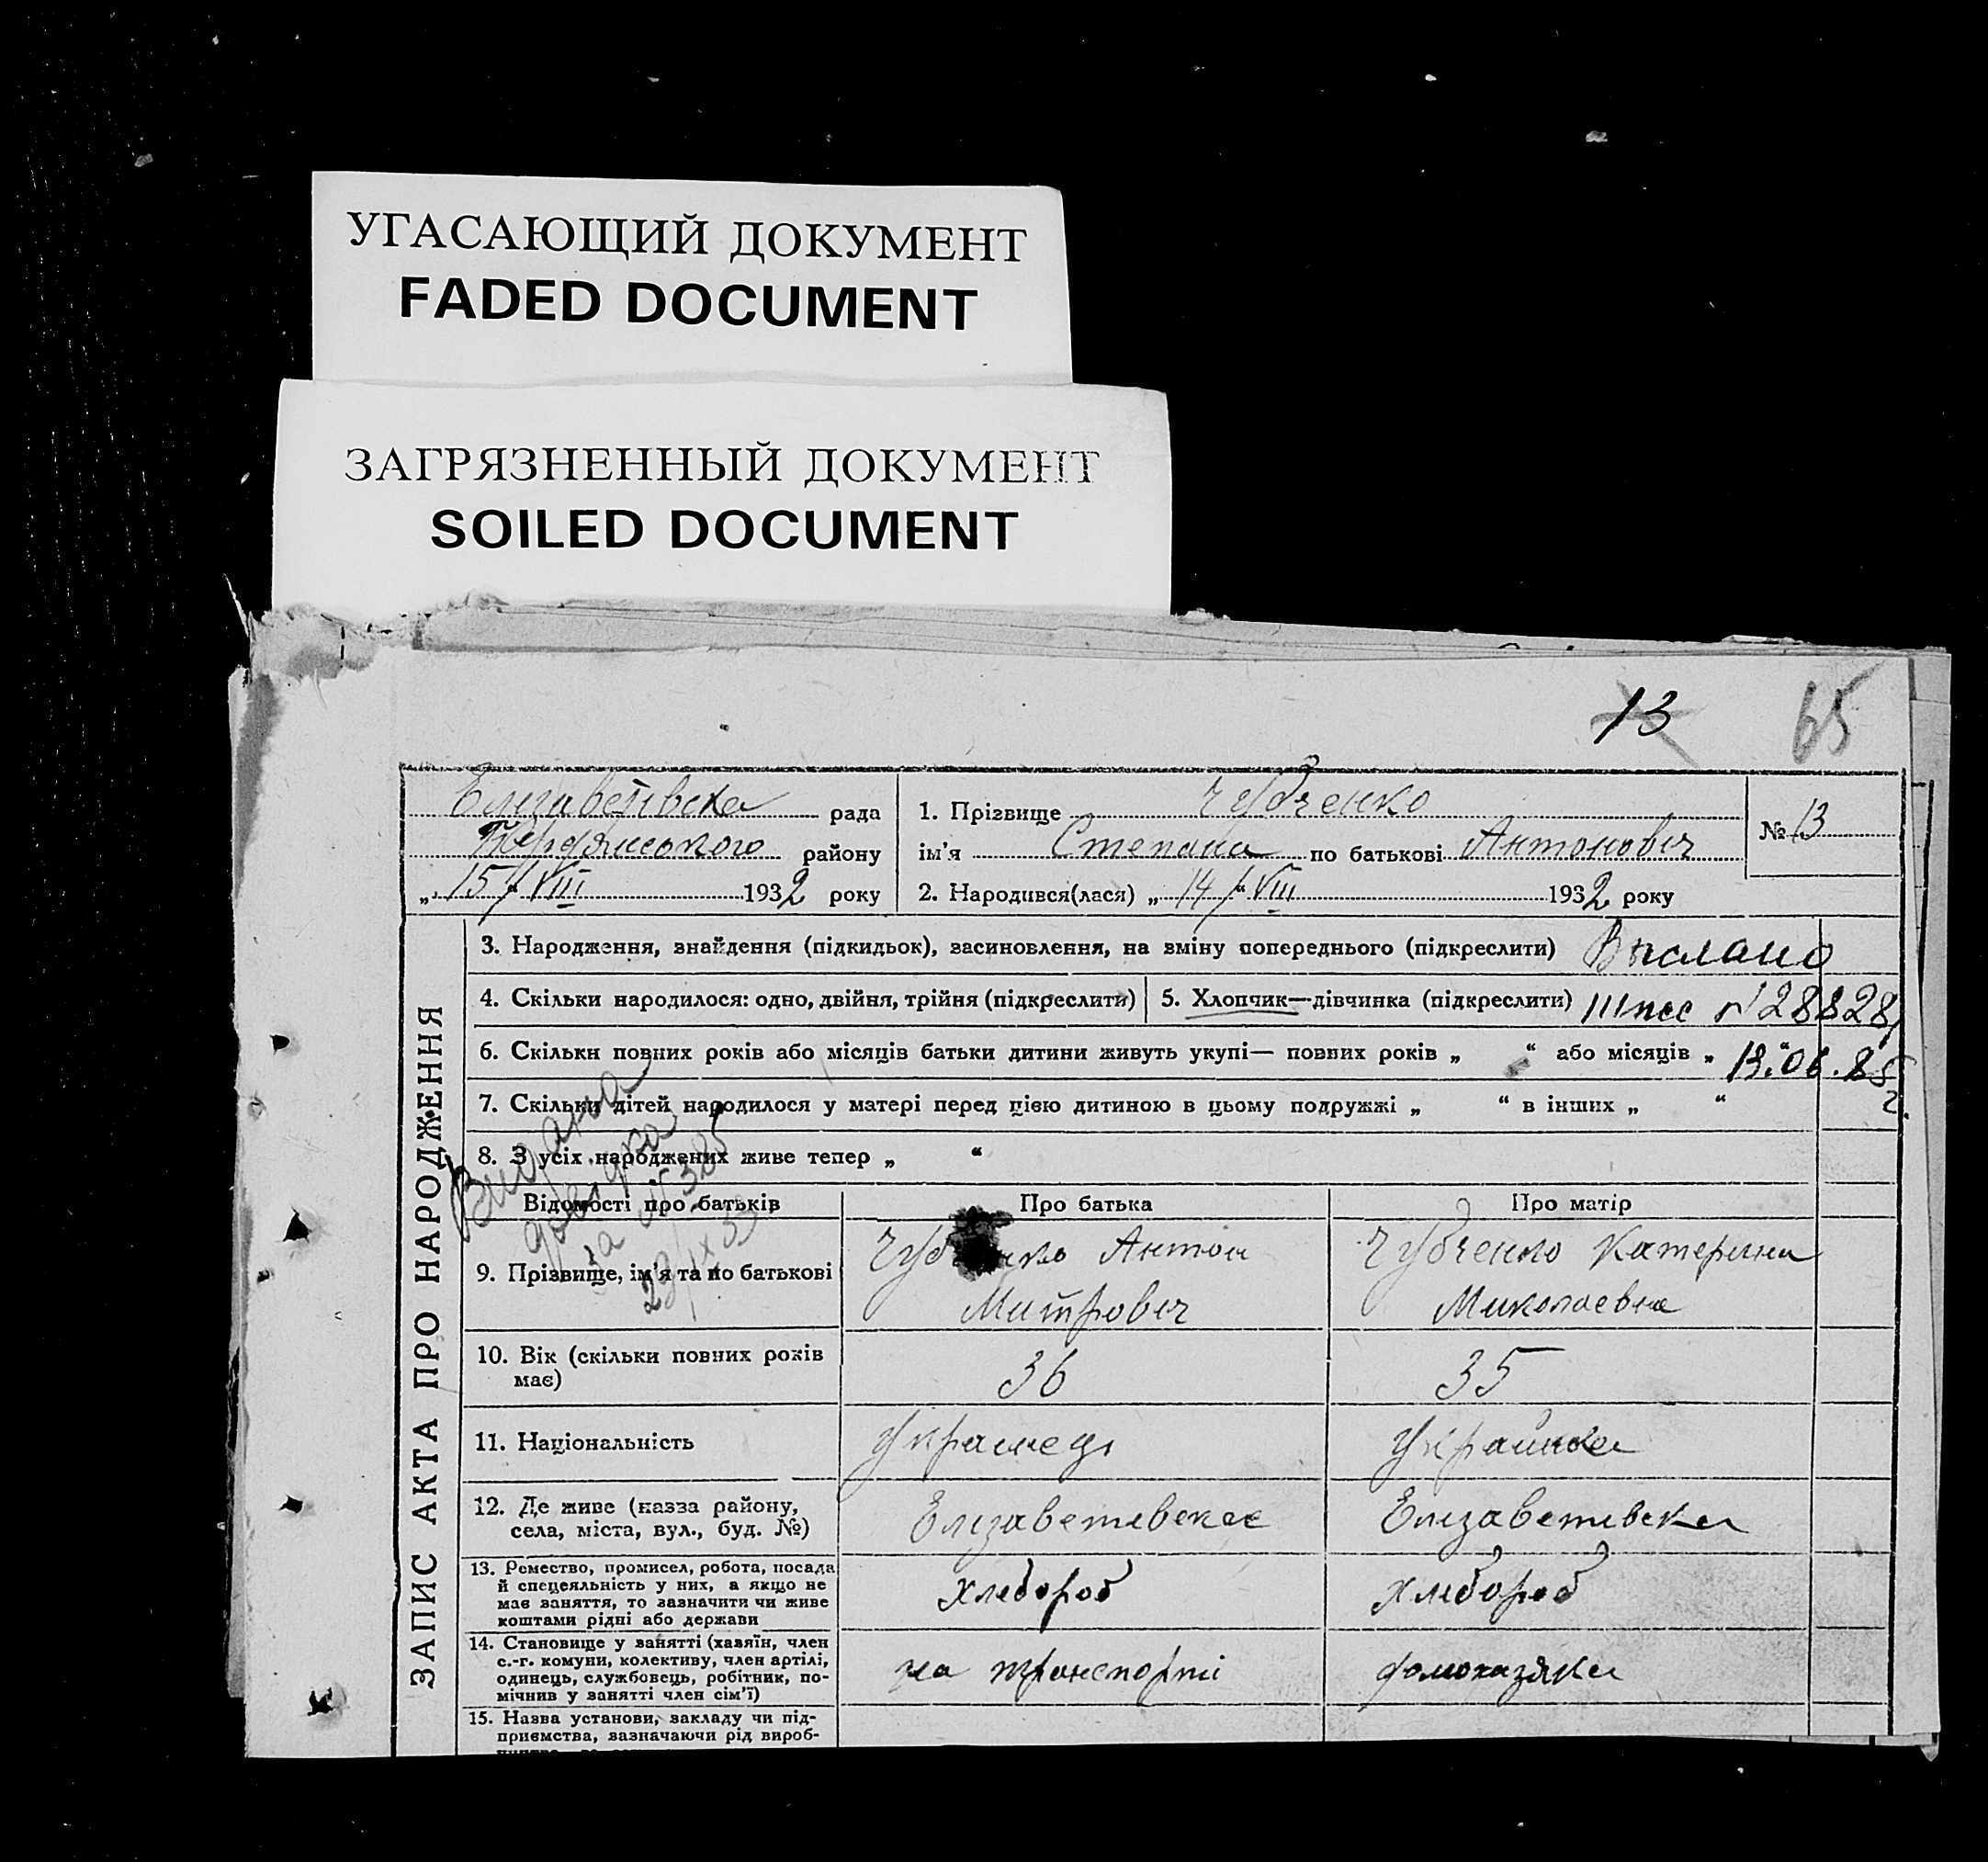 УГАСАЮЩИЙ ДОКУМЕНТ
FADED DOCUMENT
ЗАГРЯЗНЕННЫЙ ДОКУМЕНТ
SOILED DOCUMENT
13 65
Єлізаветівска рада
Бердянського району
„ 15 / VIII 1932 року
1. Прізвище Чубченко
ім'я Степан по батькові Антонович
2. Народився(лася) „ 14 “ VIII 1932 року
№ 13
ЗАПИС АКТА ПРО НАРОДЖЕННЯ
3. Народження, знайдення (підкидьок), засиновлення, на зміну попереднього (підкреслити) Выслано
4. Скільки народилося: одно, двійня, трійня (підкреслити) 5. Хлопчик—дівчинка (підкреслити) N 28828
6. Скільки повних років або місяців батьки дитини живуть укупі— повних років „ “ або місяців „ “ 13.06.85
г.
7. Скільки дітей народилося у матері перед цією дитиною в цьому подружжі „ “ в інших „ “
8. З усіх народжених живе тепер „ “
Видана
довідка
за № 385
29/IX 33
Відомості про батьків Про батька Про матір
9. Прізвище, ім'я та по батькові
Чуб нко Антон
Митрович
Чубченко Катерина
Миколаевна
10. Вік (скільки повних років
має)
36 35
11. Національність Українець Українка
12. Де живе (назва району,
села, міста, вул., буд. №)
Елізаветівска Елізаветівска
13. Ремество, промисел, робота, посада
й спецеяльність у них, а якщо не
має заняття, то зазначити чи живе
коштами рідні або держави
хлебороб хлебороб
14. Становище у занятті (хазяїн, член
с.-г. комуни, колективу, член артілі,
одинець, службовець, робітник, по-
мічнив у занятті член сім'ї)
на транспорті домохазяка
15. Назва установи, закладу чи під-
приємства, зазначаючи рід вироб-